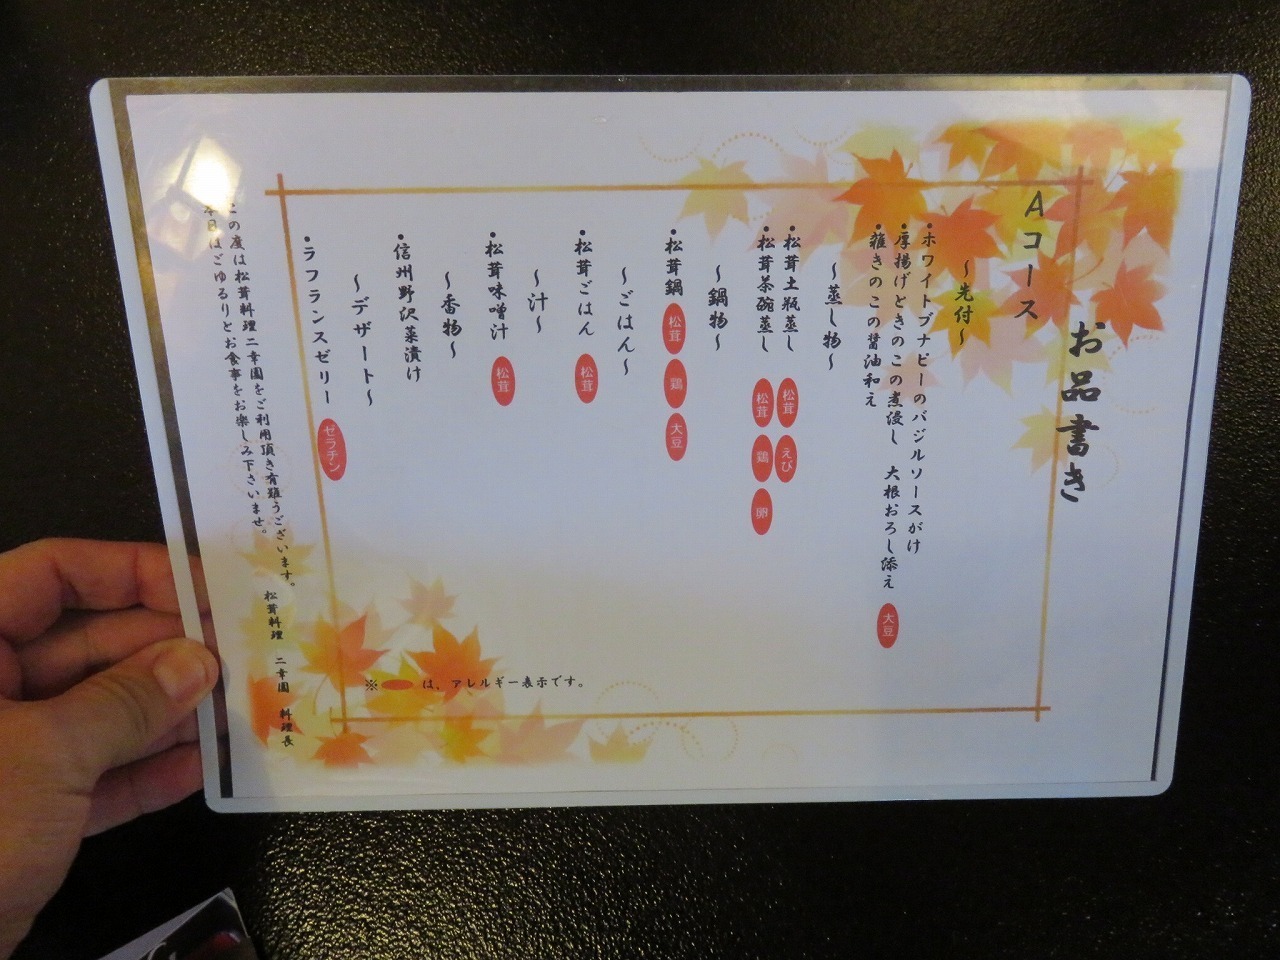 お品書き
Aコース
～先付～
・ホワイトブナピーのバジルソースがけ
・厚揚げときのこの煮浸し 大根おろし添え 大豆
・雑きのこの醤油和え
～蒸し物～
・松茸土瓶蒸し 松茸 えび
・松茸茶碗蒸し 松茸 鶏 卵
～鍋物～
・松茸鍋 松茸 鶏 大豆
～ごはん～
・松茸ごはん 松茸
～汁～
・松茸味噌汁 松茸
～香物～
・信州野沢菜漬け
～デザート～
・ラフランスゼリー ゼラチン
※ は、アレルギー表示です。
この度は松茸料理二幸園をご利用頂き有難うございます。
本日はごゆるりとお食事をお楽しみ下さいませ。
松茸料理 二幸園 料理長